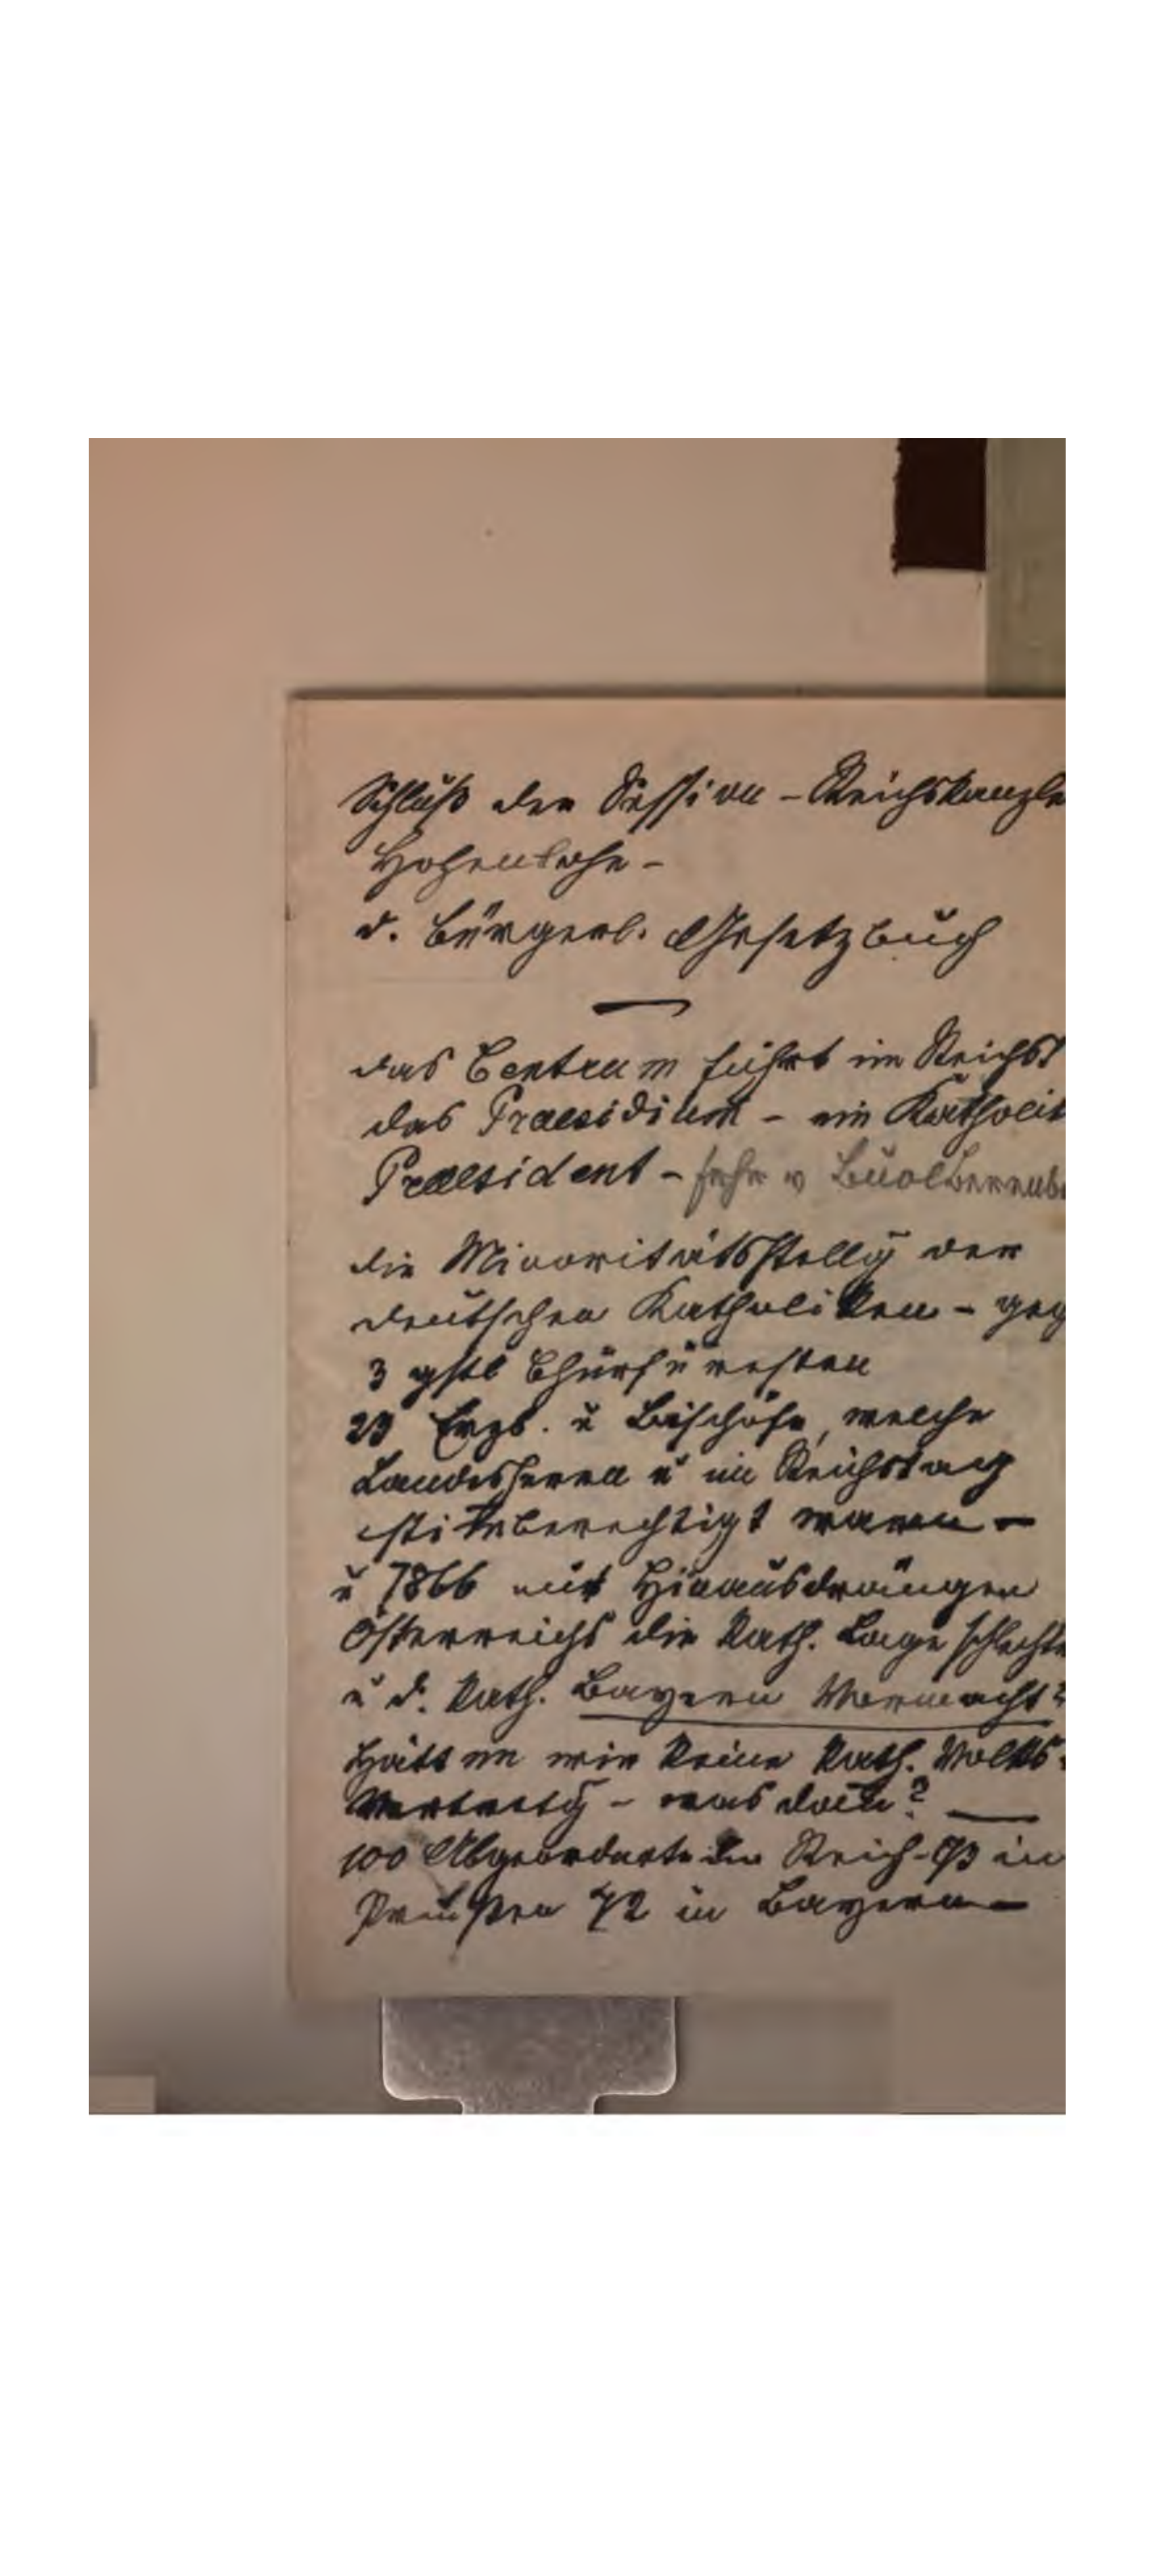 Schluß der Session - Reichskanzle
Hohenlohe -
d. bürgerl. Gesetzbuch
das Centrum führt im Reichst
das Praesidium - ein Katholik
Praesident - frhr v Buol Berenb
die Minoritätsstellg der
deutschen Katholiken - geg
3 gstl Churfürsten
23 Erzb. u Bischöfe, welche
Landesherrn u im Reichstag
stimberechtigt waren -
u 1866 mit Hinausdrängen
Österreichs die kath. Lage schlechte
u d. kath. Bayern Vormacht?
Hätten wir keine kath. Volks-
Vertretg - was dann?
100 Abgeordnete im Reich - 93 in
Preußen 72 in Bayern -